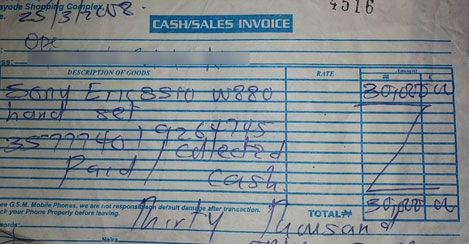 ayode Shopping Complex,
4516
25/3/2008
CASH/SALES INVOICE
Ope
DESCRIPTION OF GOODS RATE Amount
₦ K
Sony Ericsson W880 30,000 00
hand set
35777401 9264745
Paid / collected
cash
ew G.S.M. Mobile Phones, we are not responsible on default damage after transaction.
eck your Phone Properly before leaving.
TOTAL ₦ 30,000 00
Thirty Thousand
words:
Naira